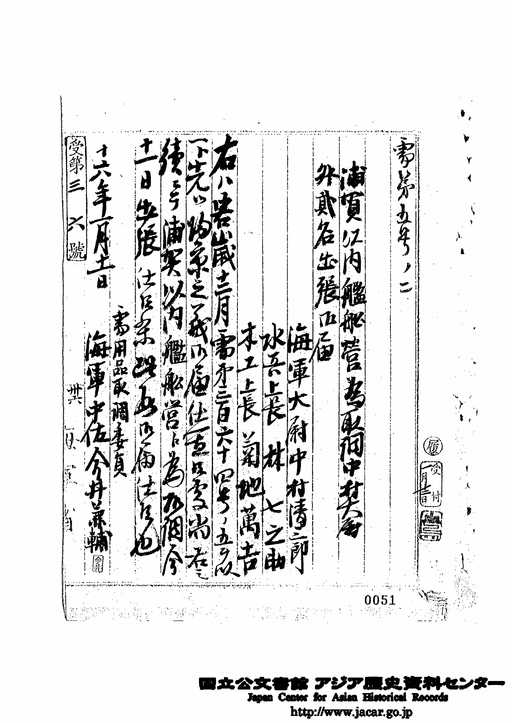 需第五号ノ二
浦賀江内艦船営為取調中村大尉
外貳名出張御届
海軍大尉中村清二郎
水兵上長 林七之助
木工上長 菊地萬吉
右ハ客歳十二月需第三百六十四号ノ五ヲ以
下先以帰京之義御届仕置候處尚右之
続ニテ浦賀以内艦船営為取調今
十一日出張仕候条此段御届仕候也
十六年一月十一日
需用品取調委員
海軍中佐今井兼輔
受第三六號
受付
一月
0051
国立公文書館 アジア歴史資料センター
Japan Center for Asian Historical Records
http://www.jacar.go.jp